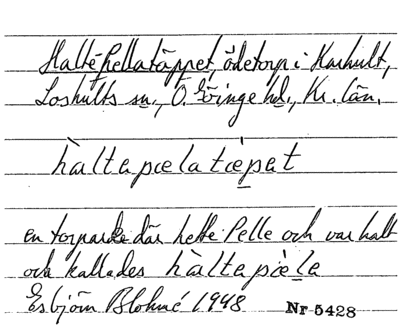 Haltepellatäppet, ödetorp i Karhult,
Loshults sn., Ö. Göinge hd., Kr. län.
hàltapælatæpət
en torpare där hette Pelle och var halt
och kallades hàltapæ̀la
Esbjörn Blohmé 1948 Nr 5428